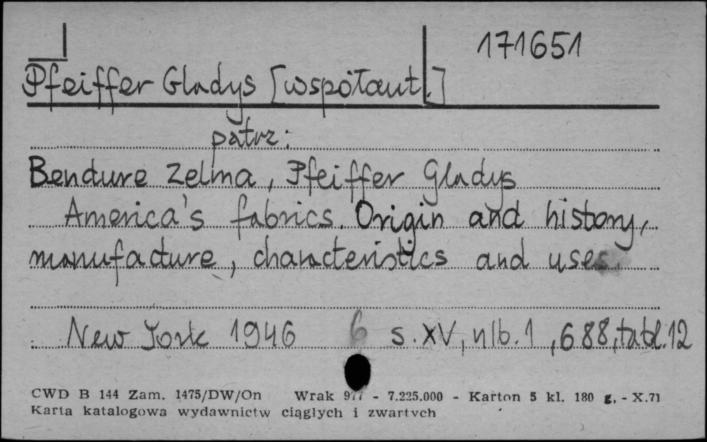 171651
Pfeiffer Gladys [współaut.]
patrz:
Bendure Zelma, Pfeiffer Gladys
America's fabrics. Origin and history,
manufacture, characteristics and uses.
New York 1946 6 s. XV, nlb. 1, 688, tabl. 12
CWD B 144 Zam. 1475/DW/On Wrak 977 - 7.225.000 - Karton 5 kl. 180 g. - X.71
Karta katalogowa wydawnictw ciągłych i zwartych